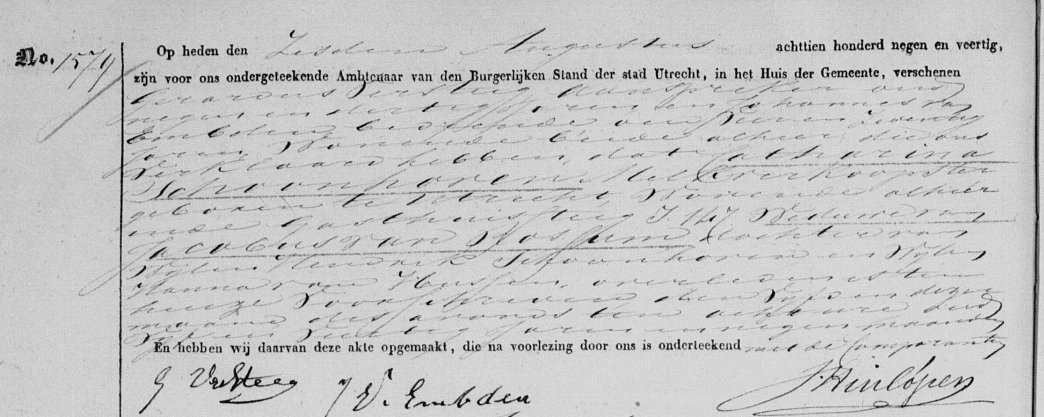 No. 1579 Op heden den Zesden Augustus achttien honderd negen en veertig,
zijn voor ons ondergeteekende Ambtenaar van den Burgerlijken Stand der stad Utrecht, in het Huis der Gemeente, verschenen
Gerardus Versteeg aanspreker oud
negen en dertig Jaren en Johannes van
Embden bediende oud
Jaren, wonende beide alhier die ons
verklaard hebben, dat Catharina
Schoonhoven
geboren te Utrecht, wonende alhier
in de Gasthuissteeg I. 127 Weduwe van
Jacobus van Rossum dochter van
Wylen Hendrik Schoonhoven en Wylen
Hanna van overleden is ten
huize voorschreven den Vyfden dezer
maand des avonds ten acht ure oud
Jaren en negen maanden
En hebben wij daarvan deze akte opgemaakt, die na voorlezing door ons is onderteekend met de Comparanten
G VerSteeg J V. Embden J. Hinlópen